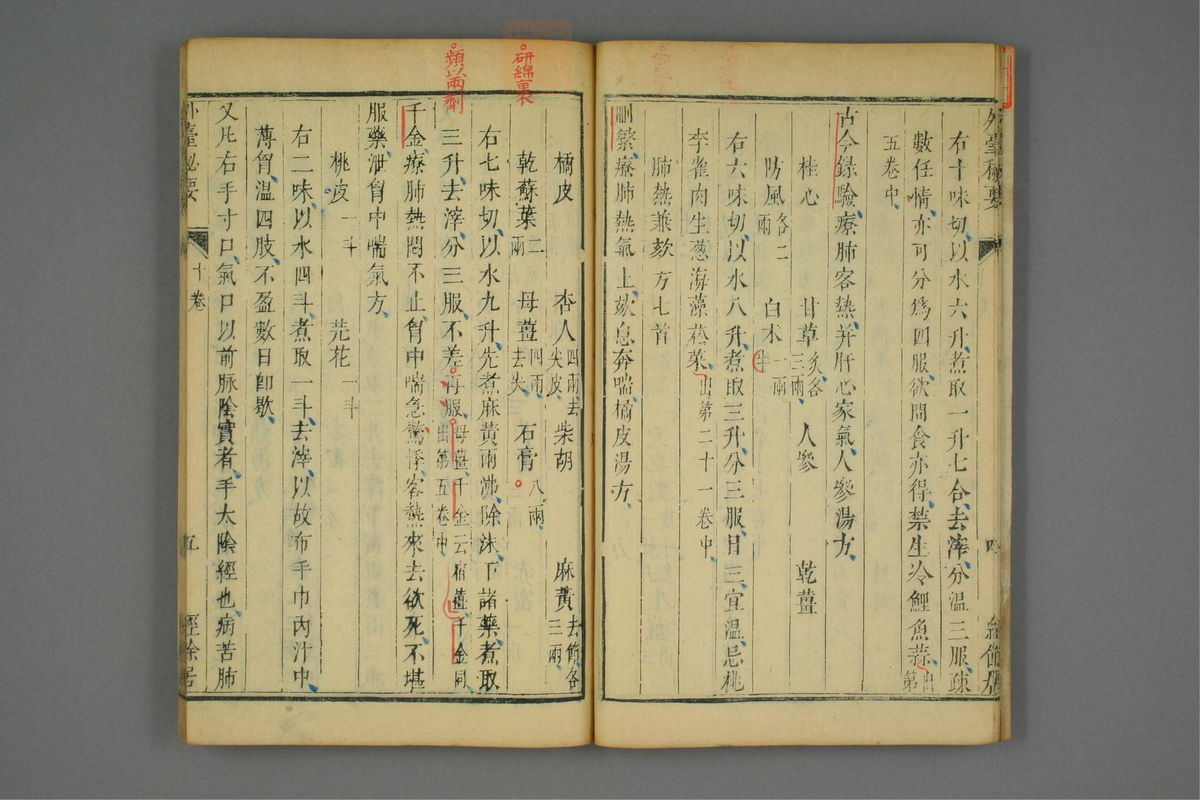 右十味切以水六升煮取一升七合去滓分溫三服疎
數任情亦可分爲四服欲間食亦得禁生冷鯉魚蒜出第
五卷中
古今錄驗療肺客熱并肝心家氣人參湯方
桂心 甘草炙各三兩 人參 乾薑
防風各二兩 白朮一兩半
右六味切以水八升煮取三升分三服日三宜溫忌桃
李雀肉生葱海藻菘菜出第二十一卷中
肺熱兼欬方七首
刪繁療肺熱氣上欬息奔喘橘皮湯方
橘皮 杏人四兩去尖皮 柴胡 麻黃去節各三兩
乾蘇葉二兩 母薑四兩去 石膏八兩
右七味切以水九升先煮麻黃兩沸除沫下諸藥煮取
三升去滓分三服不差再服母薑千金云宿薑千金同出第五卷中
千金療肺熱悶不止胷中喘急驚悸客熱來去欲死不堪
服藥泄胷中喘氣方
桃皮一斗 芫花一斗
右二味以水四斗煮取一斗去滓以故布手巾內汁中
薄胷溫四肢不盈數日卽歇
又凡右手寸口氣口以前脉陰實者手太陰經也病苦肺
外臺秘要 十卷 五 經餘居
外臺秘要 四 經餘居
研綿裹
頻以兩劑